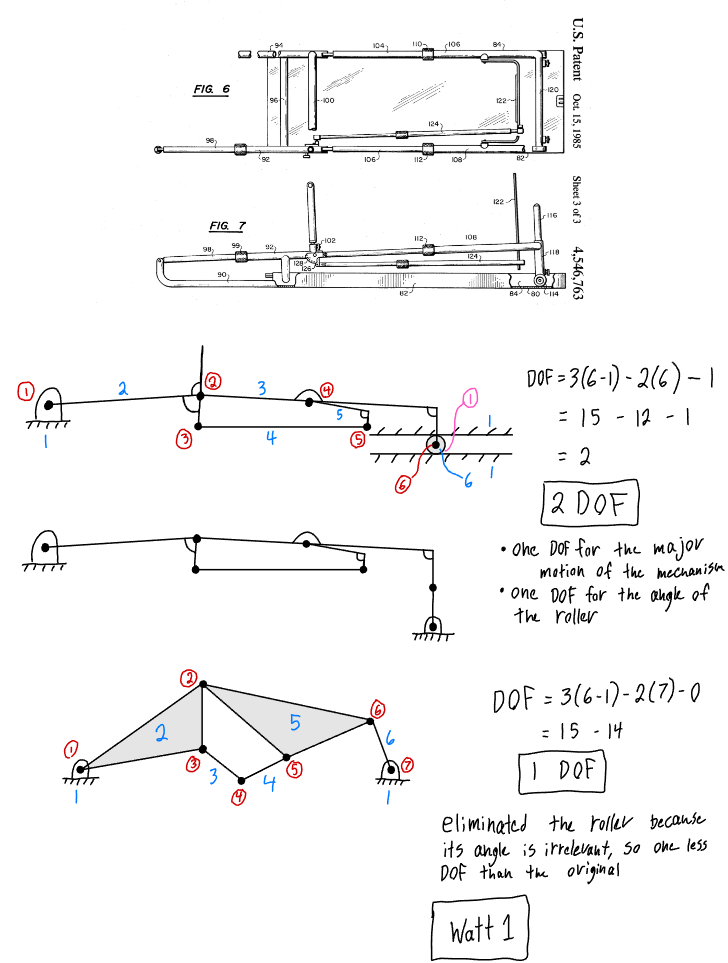 U.S. Patent Oct. 15, 1985
Sheet 3 of 3
4,546,763
94
104
110
106
84
FIG. 6
96
100
122
120
124
98
92
106
112
108
82
FIG. 7
122
116
98
99
92
102
112
108
128
126
124
118
90
82
84
80
114
1
2
2
3
4
1
5
1
3
4
5
1
6
6
1
DOF = 3(6-1) - 2(6) - 1
= 15 - 12 - 1
= 2
2 DOF
• one DOF for the major
motion of the mechanism
• one DOF for the angle of
the roller
2
6
2
5
1
3
6
3
5
7
4
4
1
1
DOF = 3(6-1) - 2(7) - 0
= 15 - 14
1 DOF
eliminated the roller because
its angle is irrelevant, so one less
DOF than the original
Watt 1